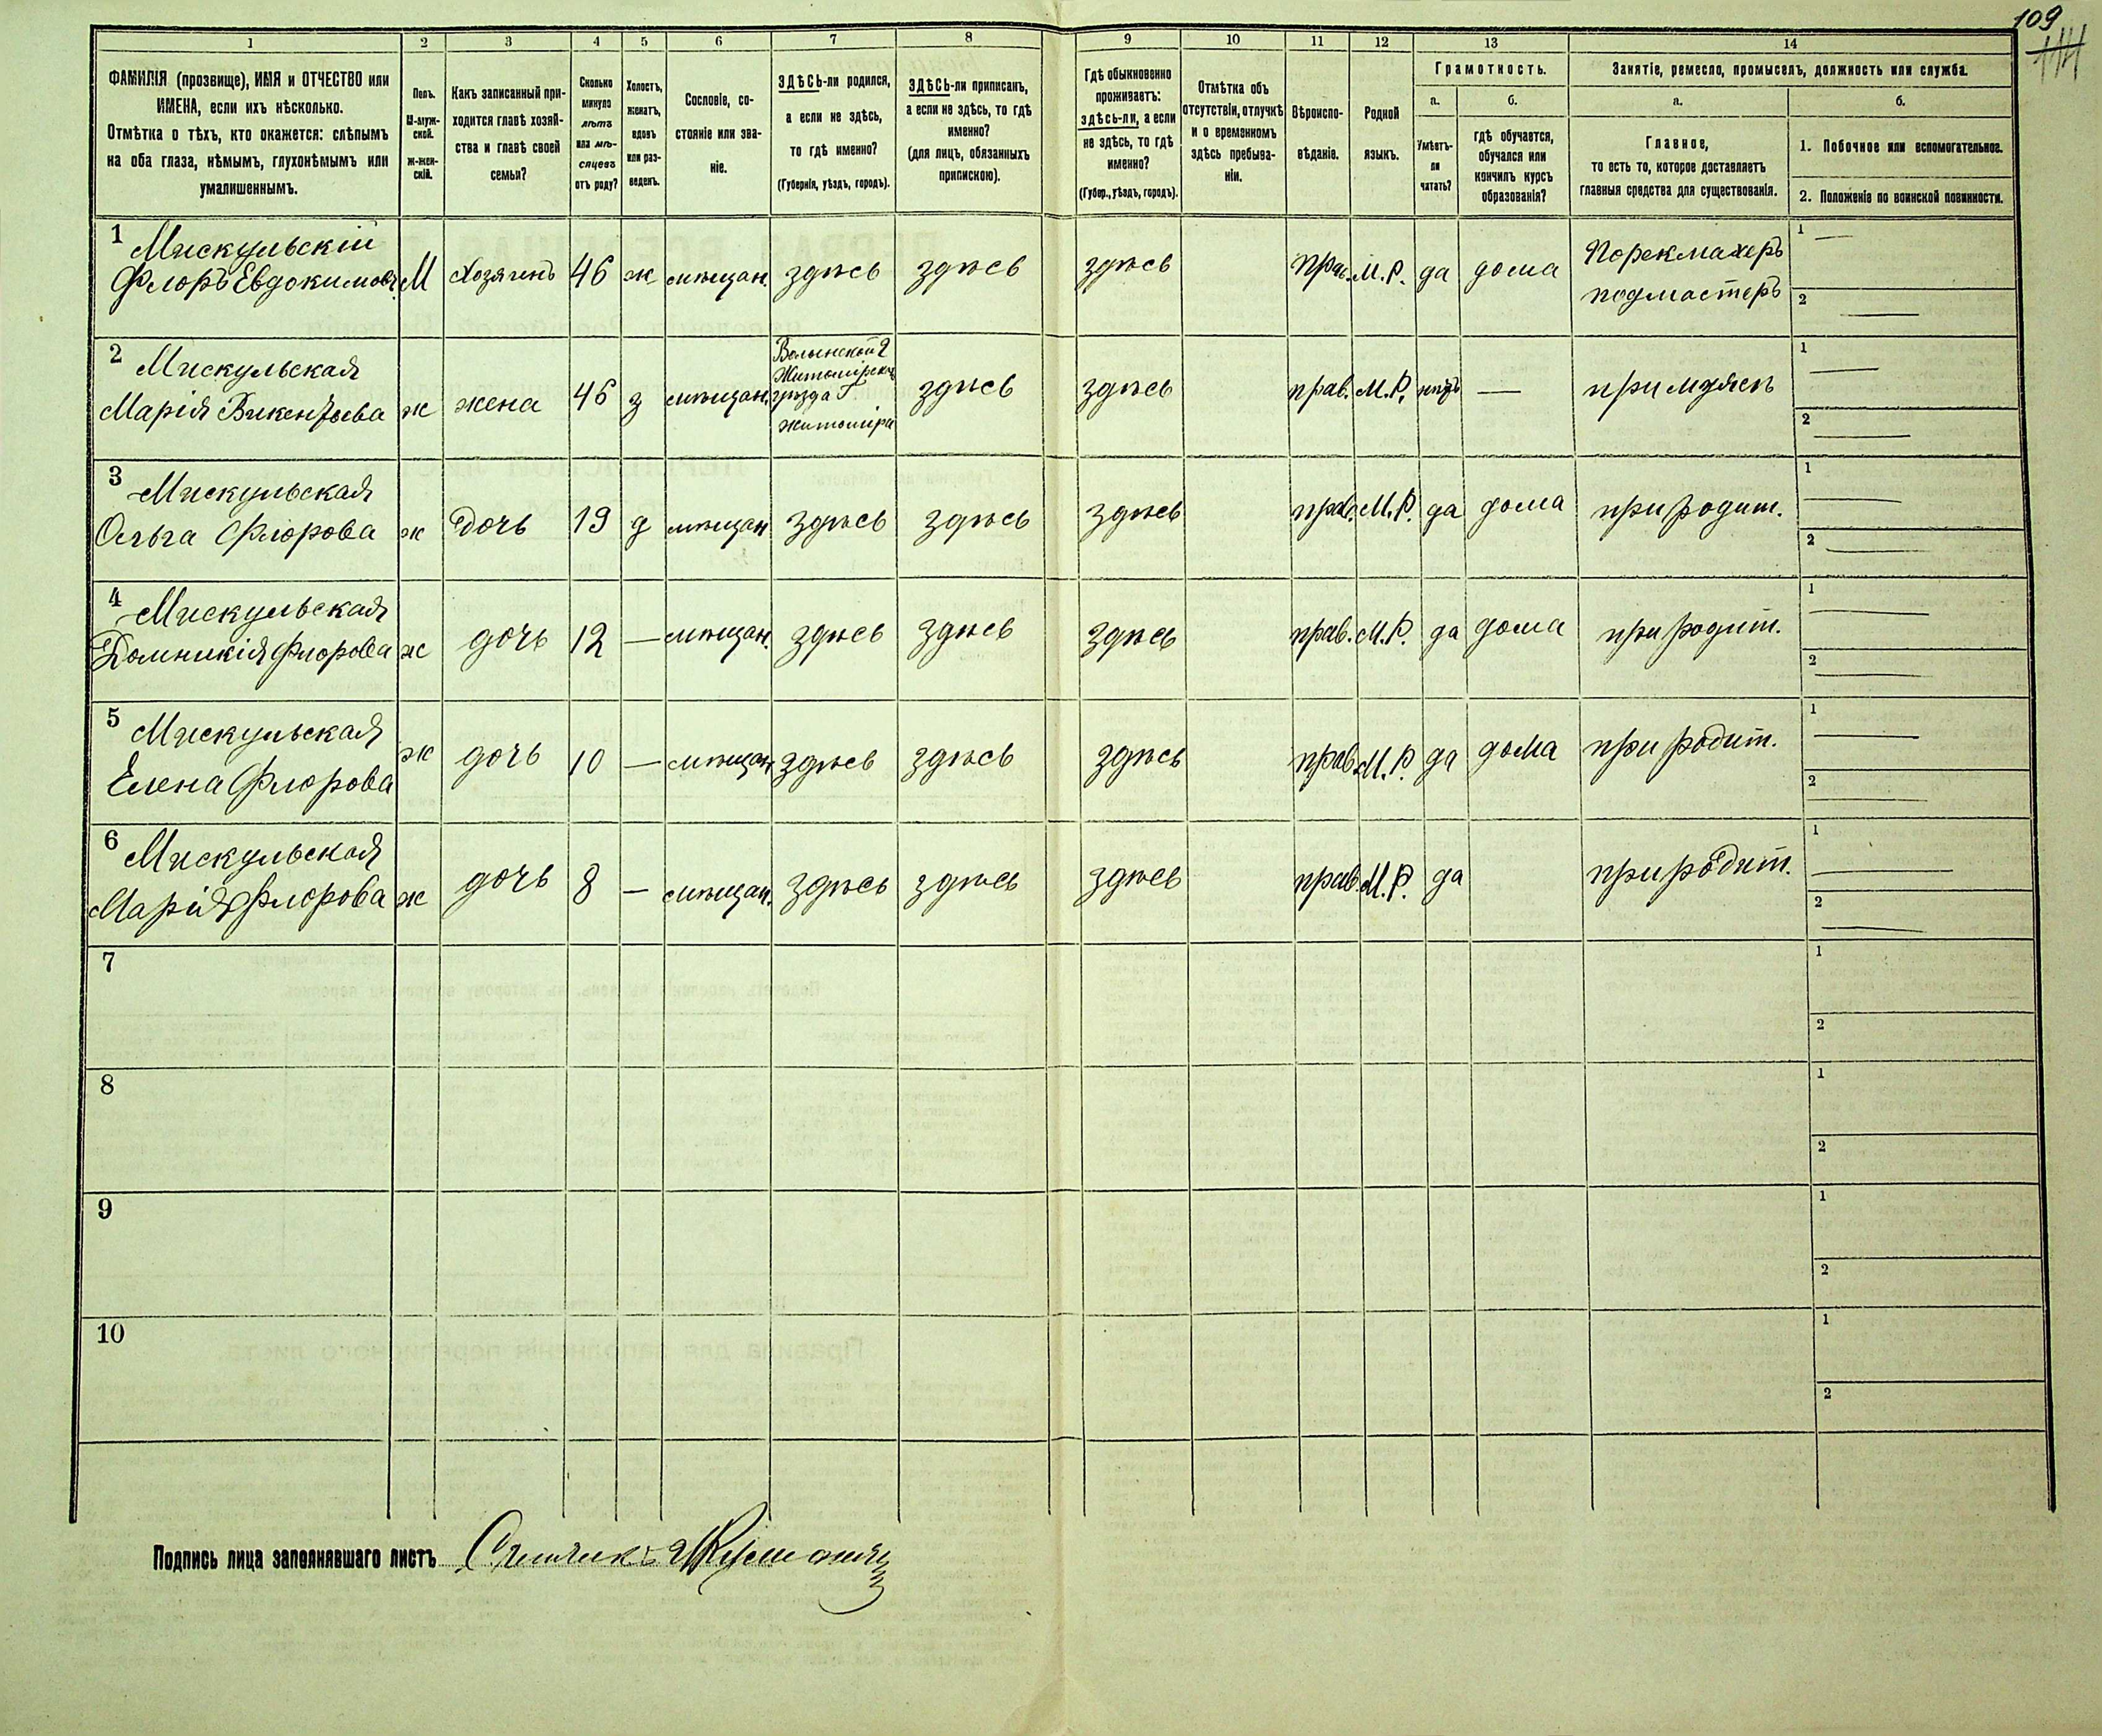 109
114
1 2 3 4 5 6 7 8 9 10 11 12 13 14
ФАМИЛІЯ (прозвище), ИМЯ и ОТЧЕСТВО или
ИМЕНА, если ихъ нѣсколько.
Отмѣтка о тѣхъ, кто окажется: слѣпымъ
на оба глаза, нѣмымъ, глухонѣмымъ или
умалишеннымъ.
Полъ.
М-муж-
ской.
ж-жен-
скій.
Какъ записанный при-
ходится главѣ хозяй-
ства и главѣ своей
семьи?
Сколько
минуло
лѣтъ
или мѣ-
сяцевъ
отъ роду?
Холостъ,
женатъ,
вдовъ
или раз-
веденъ.
Сословіе, со-
стояніе или зва-
ніе.
ЗДѢСЬ-ли родился,
а если не здѣсь,
то гдѣ именно?
(Губернія, уѣздъ, городъ).
ЗДѢСЬ-ли приписанъ,
а если не здѣсь, то гдѣ
именно?
(для лицъ, обязанныхъ
припискою).
Гдѣ обыкновенно
проживаетъ:
здѣсь-ли, а если
не здѣсь, то гдѣ
именно?
(Губер., уѣздъ, городъ).
Отмѣтка объ
отсутствіи, отлучкѣ
и о временномъ
здѣсь пребыва-
ніи.
Вѣроиспо-
вѣданіе.
Родной
языкъ.
Грамотность.
а.
Умѣетъ-
ли
читать?
б.
гдѣ обучается,
обучался или
кончилъ курсъ
образованія?
Занятіе, ремесло, промыселъ, должность или служба.
а.
Главное,
то есть то, которое доставляетъ
главныя средства для существованія.
б.
1. Побочное или вспомогательное.
2. Положеніе по воинской повинности.
1 Мискульскій
Флоръ Евдокимовъ М Хозяинъ 46 ж мѣщан. здѣсь здѣсь здѣсь прав. М.Р. да дома Порекмахеръ
подмастеръ
1 —
2 —
2 Мискульская
Марія Викентьева ж жена 46 з мѣщан. Волынской г
Житомірска
уѣзда г
Житоміра
здѣсь здѣсь прав. М.Р. нѣтъ — при мужѣ
1 —
2 —
3 Мискульская
Ольга Флорова ж дочь 19 д мѣщан здѣсь здѣсь здѣсь прав. М.Р. да дома при родит.
1 —
2 —
4 Мискульская
Домникія Флорова ж дочь 12 — мѣщан. здѣсь здѣсь здѣсь прав. М.Р. да дома при родит.
1 —
2 —
5 Мискульская
Елена Флорова ж дочь 10 — мѣщан здѣсь здѣсь здѣсь прав. М.Р. да дома при родит.
1 —
2 —
6 Мискульская
Марія Флорова ж дочь 8 — мѣщан. здѣсь здѣсь здѣсь прав. М.Р. да при родит.
1 —
2 —
7 1
2
8 1
2
9 1
2
10 1
2
Подпись лица заполнявшаго листъ Счетчикъ